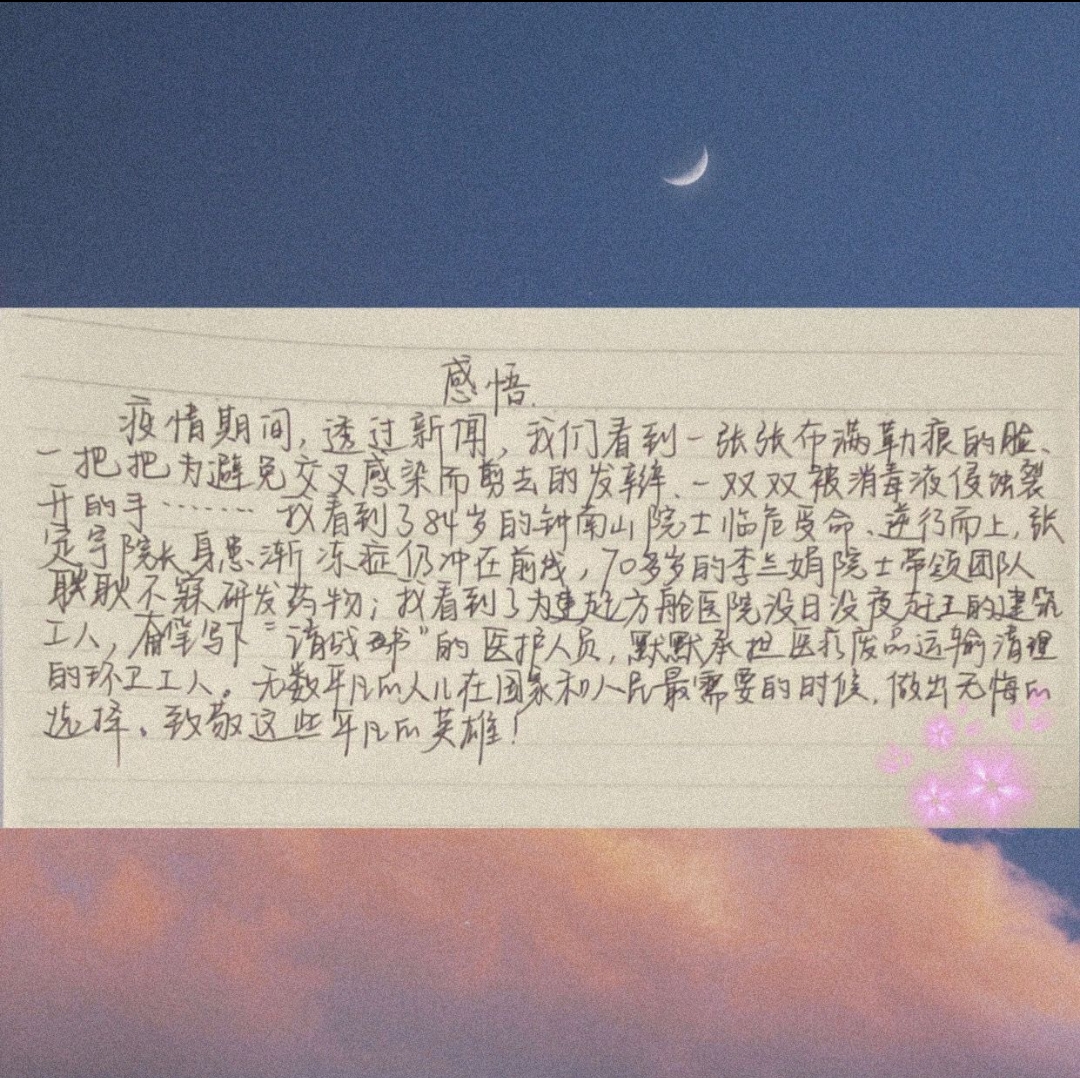 感悟
疫情期间，透过新闻，我们看到一张张布满勒痕的脸、
一把把为避免交叉感染而剪去的发辫、一双双被消毒液侵蚀裂
开的手………我看到了84岁的钟南山院士临危受命、逆行而上，张
定宇院长身患渐冻症仍冲在前线，70多岁的李兰娟院士带领团队
耿耿不寐研发药物；我看到了为建起方舱医院没日没夜赶工的建筑
工人，奋笔写下“请战书”的医护人员，默默承担医疗废品运输清理
的环卫工人。无数平凡的人儿在国家和人民最需要的时候，做出无悔的
选择。致敬这些平凡的英雄！